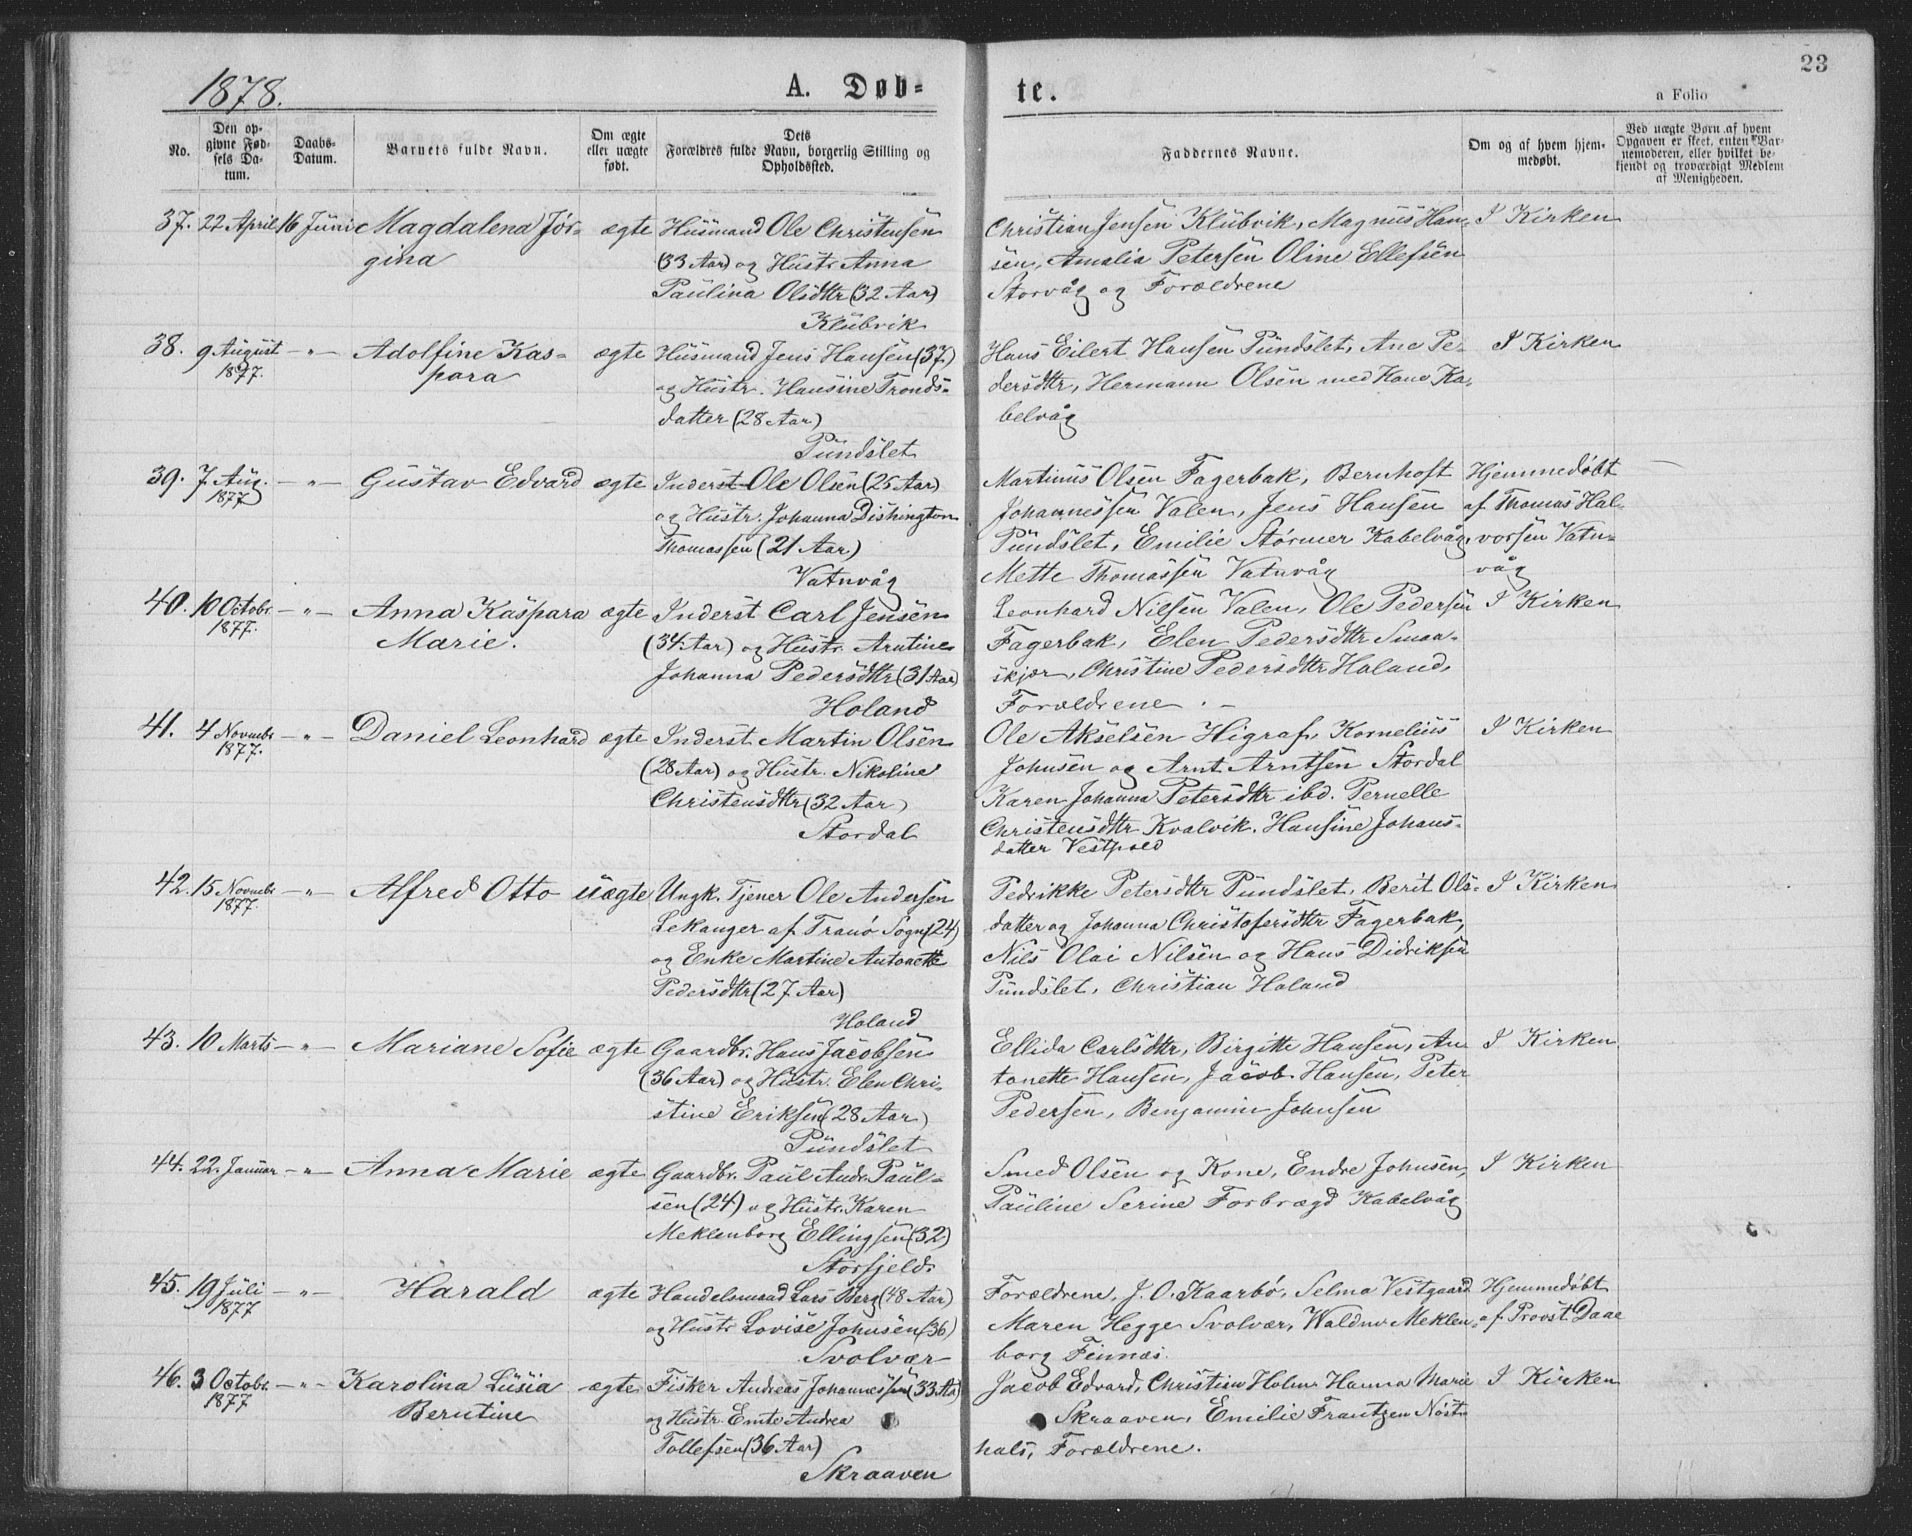 23
1878. A. Døb-
te.
a Folio
No.
Den op-
givne Fød-
sels Da-
tum.
Daabs-
Datum.
Barnets fulde Navn.
Om ægte
eller uægte
født.
Dets
Forældres fulde Navn, borgerlig Stilling og
Opholdssted.
Faddernes Navne.
Om og af hvem hjem-
medøbt.
Ved uægte Børn af hvem
Opgaven er skeet, enten Bar-
nemoderen, eller hvilket be-
kjendt og troværdigt Medlem
af Menigheden.
37. 22 April 16 Juni Magdalena Jør- ægte Husmand Ole Christensen Christian Jensen Klubvik, Magnus Han- I Kirken
gina (33 Aar) og Hustr. Anna sen, Amalia Petersen Oline Ellefsen
Paulina Olsdttr (32 Aar) Storvåg og Forældrene
Klubvik
38. 9 August — " — Adolfine Kas- ægte Husmand Jens Hansen (37) Hans Eilert Hansen Pundslet, Ane Pe- I Kirken
1877. para og Hustr. Hansine Tronds- dersdttr, Hermann Olsen med Kone Ka-
datter (28 Aar) belvåg
Pundslet
39. 7 Aug. — " — Gustav Edvard ægte Inderst Ole Olsen (25 Aar) Martinus Olsen Fagerbak, Bernhoft Hjemmedøbt
1877 og Hustr. Johanna Dishington Johannessen Valen, Jens Hansen af Thomas Hal-
Thomassen (21 Aar) Pundslet, Emilie Størmer Kabelvåg, vorsen Vatn-
Vatnvåg Mette Thomassen Vatnvåg våg
40. 10 Octobr — " — Anna Kaspara ægte Inderst Carl Jensen Leonhard Nilsen Valen, Ole Pedersen I Kirken
1877. Marie. (34 Aar) og Hustr. Arntine Fagerbak, Elen Pedersdttr Smaa-
Johanna Pedersdttr (31 Aar) skjær, Christine Pedersdttr Holand,
Holand Forældrene. —
41. 4 Novmbr — " — Daniel Leonhard ægte Inderst Martin Olsen Ole Akselsen Higraf, Kornelius I Kirken
1877. (28 Aar) og Hustr. Nikoline Johnsen og Arnt Arntsen Stordal
Christensdttr (32 Aar) Karen Johanna Petersdttr ibd. Pernelle
Stordal Christensdttr Kvalvik. Hansine Johans-
datter Vestpold
42. 15 Novmbr — " — Alfred Otto uægte Ungk. Tjener Ole Andersen Pedrikke Petersdttr Pundslet, Berit Ols- I Kirken
1877. Lekanger af Tranø Sogn (24) datter og Johanna Christofersdttr Fagerbak,
og Enke Martine Antonette Nils Olai Nilsen og Hans Didriksen
Pedersdttr (27 Aar) Pundslet, Christian Holand
Holand
43. 10 Marts — " — Mariane Sofie ægte Gaardbr. Hans Jacobsen Ellida Carlsdttr, Birgitte Hansen, An I Kirken
(36 Aar) og Hustr. Elen Chri- tonette Hansen, Jacob Hansen, Peter
stine Eriksen (28 Aar) Pedersen, Benjamin Johnsen
Pundslet
44. 22. Januar — " — Anna Marie ægte Gaardbr. Paul Andr. Paul- Smed Olsen og Kone, Endre Johnsen, I Kirken
sen (24) og Hustr. Karen Pauline Serine Forbrægd Kabelvåg
Meklenborg Ellingsen (32)
Storfjeld.
45. 19 Juli — " — Harald ægte Handelsmand Lars Berg (48 Aar) Forældrene, J. O. Kaarbø, Selma Vestgaard Hjemmedøbt
1877 og Hustr Lovise Johnsen (36) Maren Hegge Svolvær, Waldmr Meklen- af Provst Daae
Svolvær borg Finnæs.
46. 3 Octobr. — " — Karolina Lusia ægte Fisker Andreas Johannessen (33 Aar) Jacob Edvard, Christian Holm Hanna Marie I Kirken
1877 Berntine og Hustr. Emte Andrea Skraaven, Emilie Frantzen Nøst-
Tollefsen (36 Aar) hals, Forældrene.
Skraaven